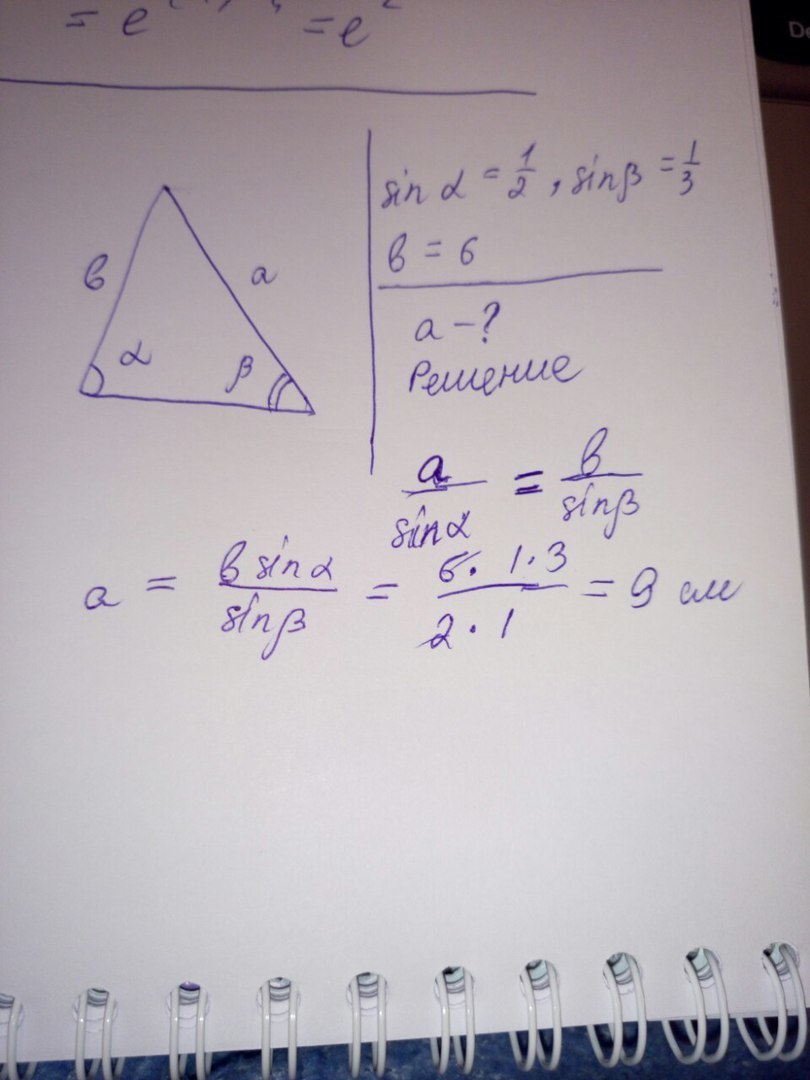 = e = e²
sin α = 1/2, sin β = 1/3
в = 6
в a
α β
a - ?
Решение
a/sin α = в/sin β
a = в sin α/sin β = 6 · 1 · 3/2 · 1 = 9 см